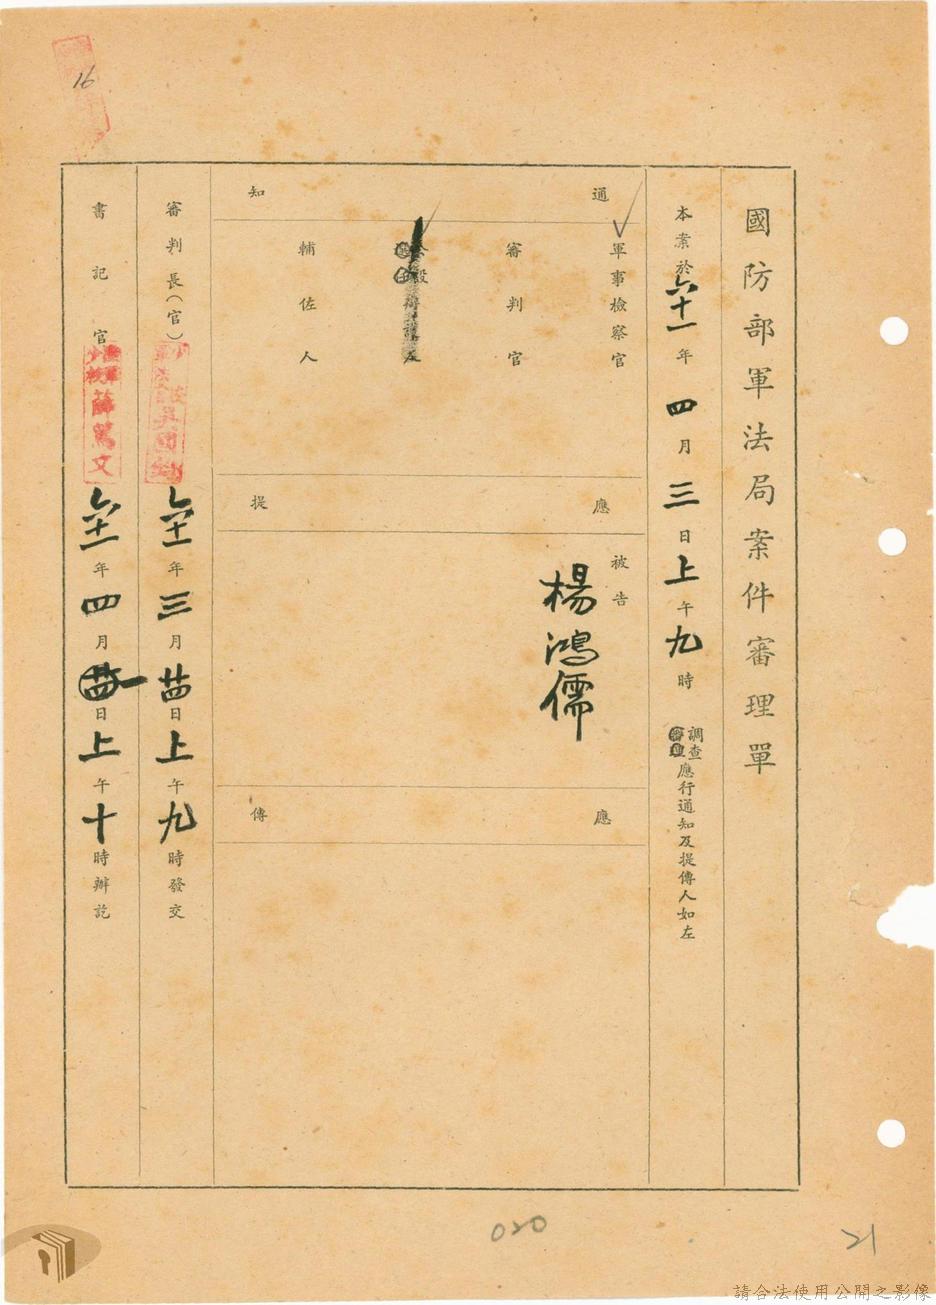 國防部軍法局案件審理單
本案於六十一年四月三日上午九時調查應行通知及提傳人如左
通知
軍事檢察官
審判官
公設辯護人
輔佐人
應提
被告
楊鴻儒
應傳
審判長(官) 六十一年三月廿四日上午九時發交
書記官 薛篤文 六十一年四月廿四日上午十時辦訖
16
020
21
請合法使用公開之影像